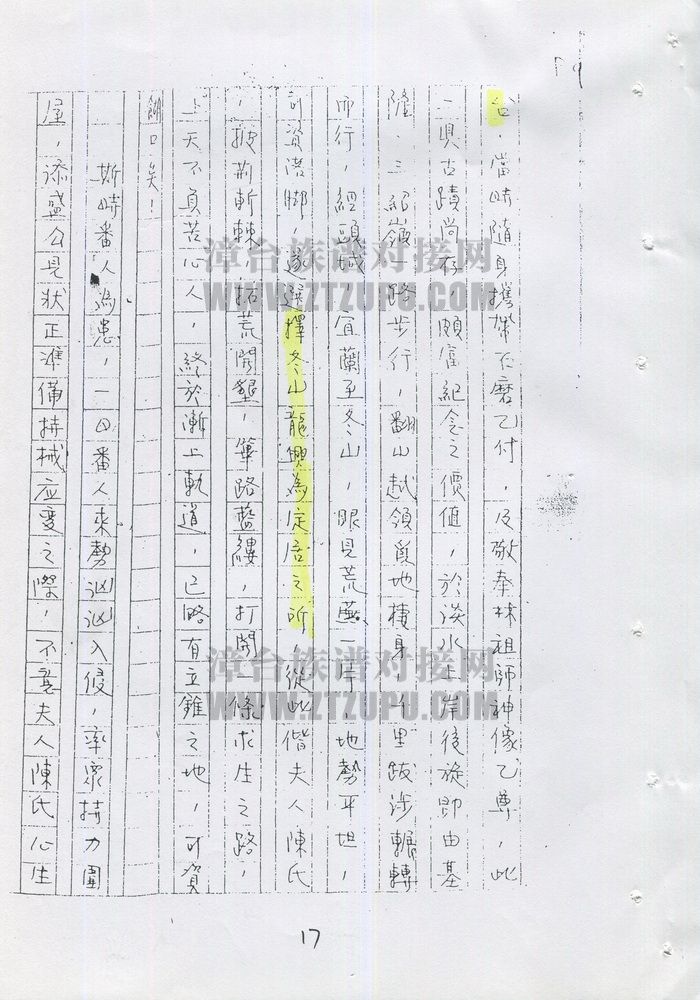 台。當時隨身攜帶石磨乙付，及敬奉林祖師神像乙尊，此
二俱古蹟尚存，頗富紀念之價值，於淡水上岸後旋即由基
隆、三紹嶺一路步行，翻山越領覓地棲身，千里跋涉輾轉
而行，經頭城，宜蘭至冬山，眼見荒蕪一片，地勢平坦，
可資落脚，遂選擇冬山龍興為定居之所，從此偕夫人陳氏
，披荆斬棘，拓荒開墾，篳路藍縷，打開一條求生之路，
上天不負苦心人，終於漸上軌道，已略有立錐之地，可資
餬口矣！
斯時番人為患，一日番人來勢汹汹入侵，率眾持刀圍
屋，添盛公見狀正準備持械应变之際，不意夫人陳氏心生
17
漳台族谱对接网
WWW.ZTZUPU.COM
漳台族谱对接网
WWW.ZTZUPU.COM